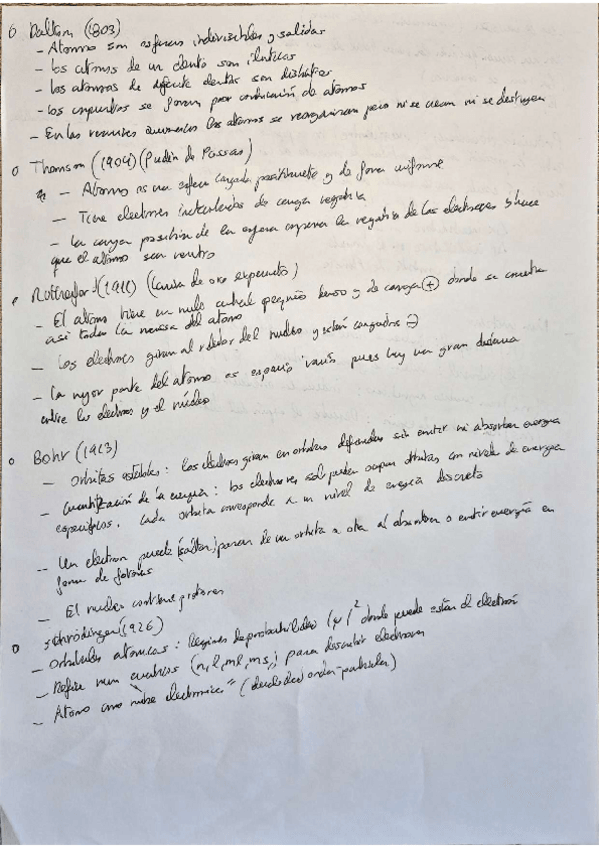 o Dalton (1803)
- Atomos son esferas indivisibles y solidas
- Los atomos de un elemto son identicos
- Los atomos de difete elemtos son distintos
- Los compustos se forman por combinación de atomos
- En las reaccines quimicas los atomos se reorganizan pero ni se crean ni se destruyen
o Thomson (1904) (Pudin de Pasas)
- Atomo es una esfera cargada positivamete y de forma uniforme
- Tiene electrones incrustados de carga negativa
- La carga positiva de la esfera compensa la negativa de los electrones y hace
que el atomo sea neutro
(1911) (Lamina de oro experimeto)
- El atomo tiene un nucleo central pequeño denso y de carga (+) donde se
casi toda la massa del atomo
- Los electrones giran al rededor del nucleo y están cargados (-)
- La mayor parte del atomo es espacio vacío pues hay una gran distancia
entre los electrones y el núcleo
o Bohr (1913)
- Orbitas estables: Los electrones giran en orbitas definidas sin emitir ni absorber energia
- Cuantización de la energia: Los electrones solo pueden ocupar orbitas con niveles de energia
especificos. Cada orbita corresponde a un nivel de energia discreto
- Un electron puede (saltar) pasar de una orbita a otra al absorber o emitir energía en
forma de fotones
- El nucleo contiene protones
o Schrödinger (1926)
- Orbitales atomicos: Regiones de probabilidad |ψ|² donde puede estar el electrón
- Define num cuanticos (n, l, ml, ms,) para describir electrones
- Atomo como nube electronica" (dualidad onda-particula)